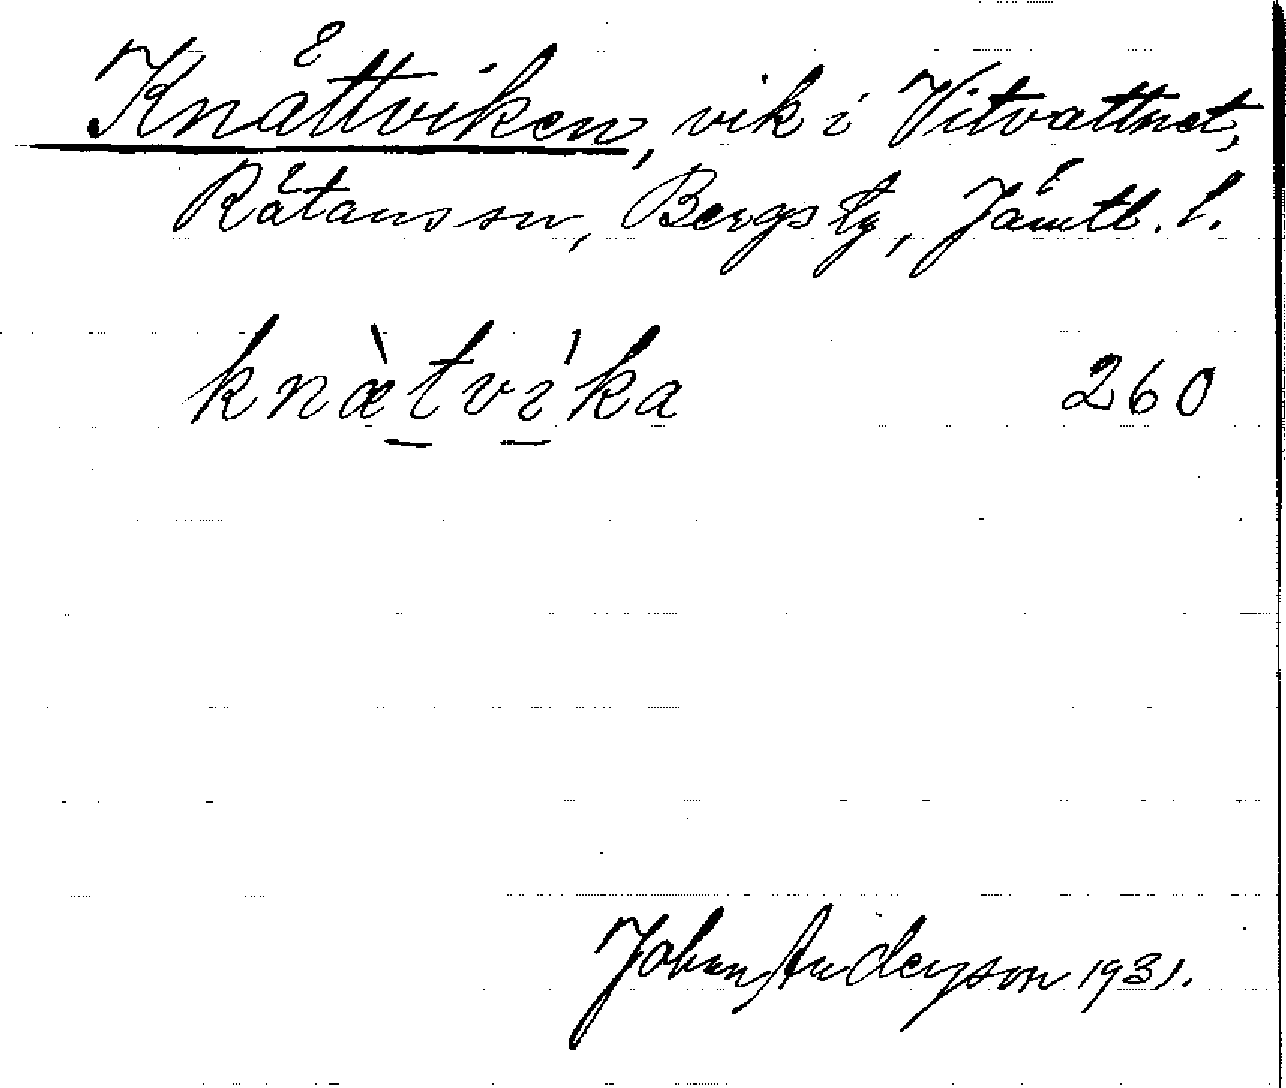 Knättviken, vik i Vitvattnet,
Rätans sn, Bergs tg, Jämtl. l.
knæ̀t̲ví̲ka 260
Johan Anderson 1931.